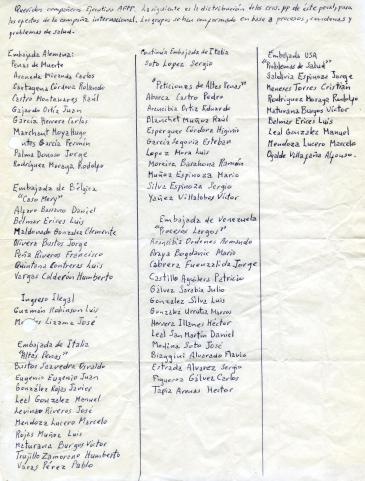 Queridos compañeros Ejecutivo AFPP. La siguiente es la distribución de los crs. pp de este penal, para
los efectos de la campaña internacional. Los grupos se han conformado en base a procesos, condenas y
problemas de salud.
Embajada Alemana:
Penas de Muerte
Araneda Miranda Carlos
Cartagena Córdova Rolando
Castro Montanares Raúl
Gajardo Ortiz Juan
García Herrera Carlos
Marchant Moya Hugo
García Fermín
Palma Donoso Jorge
Rodríguez Moraga Rodolfo
Embajada de Bélgica
"Caso Mery"
Alfaro Barrano Daniel
Belmar Erices Luis
Maldonado González Clemente
Rivera Bustos Jorge
Peña Riveros Francisco
Quintana Contreras Luis
Vargas Calderón Humberto
Ingreso Ilegal
Guzmán Robinson Luis
Lizama José
Embajada de Italia
"Altas Penas"
Bustos Saavedra Osvaldo
Eugenio Eugenio Juan
González Rojas Javier
Leal González Manuel
Levinao Riveros José
Mendoza Lucero Marcelo
Rojas Muñoz Luis
Maturana Burgos Víctor
Trujillo Zamorano Humberto
Varas Pérez Pablo
Continúa Embajada de Italia
Soto López Sergio
"Peticiones de Altas Penas"
Abarca Castro Pedro
Arancibia Ortiz Eduardo
Blanchet Muñoz Raúl
Esperguer Córdova Higinio
García Segovia Esteban
López Mora Luis
Moreira Barahona Ramón
Muñoz Espinoza Mario
Silva Espinoza Sergio
Yáñez Villalobos Víctor
Embajada de Venezuela
"Procesos Largos"
Arancibia Ordenes Armando
Araya Bogdanic Mario
Cabrera Fuenzalida Jorge
Castillo Aguilera Patricio
Gálvez Sarabia Julio
González Silva Luis
González Urrutia Marcos
Herrera Illanes Héctor
Leal San Martín Daniel
Medina Soto José
Biaggini Alvarado Flavio
Estrada Alvarez Sergio
Figueroa Gálvez Carlos
Tapia Armas Hector
Embajada USA
"Problemas de Salud"
Saldivia Espinoza Jorge
Meneses Torres Cristián
Rodríguez Moraga Rodolfo
Maturana Burgos Víctor
Belmar Erices Luis
Leal González Manuel
Mendoza Lucero Marcelo
Ogalde Villagaña Alfonso.